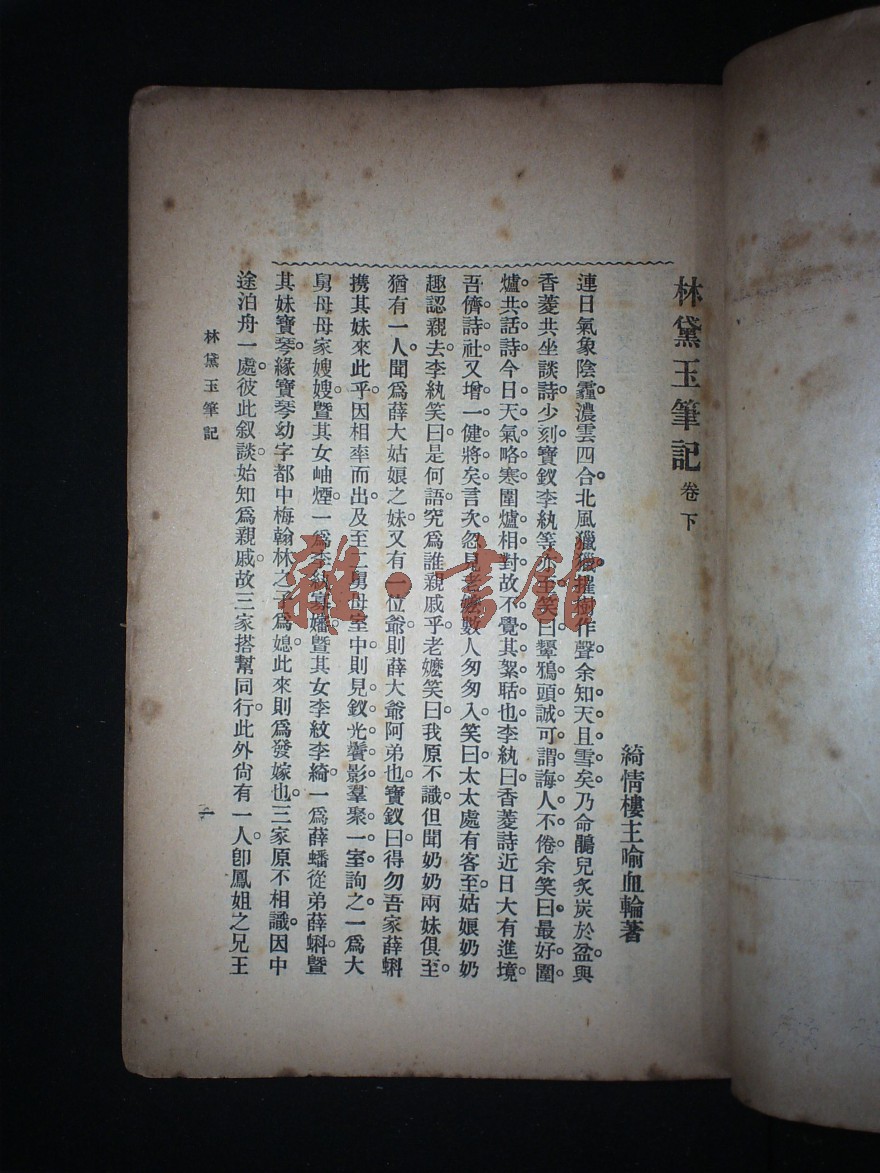 林黛玉筆記 卷下
綺情樓主喻血輪著
連日氣象陰霾。濃雲四合。北風獵獵。摧樹作聲。余知天且雪矣。乃命鵑兒炙炭於盆。與
香菱共坐談詩。少刻寶釵李紈等亦至。笑曰。顰鴉頭誠可謂誨人不倦。余笑曰。最好圍
爐共話詩。今日天氣略寒。圍爐相對。故不覺其絮聒也。李紈曰。香菱詩近日大有進境。
吾儕詩社又增一健將矣。言次。忽見老嬤數人匆匆入。笑曰。太太處有客至。姑娘奶奶
趣認親去。李紈笑曰。是何語。究爲誰親戚乎。老嬤笑曰。我原不識。但聞奶奶兩妹俱至。
猶有一人。聞爲薛大姑娘之妹。又有一位爺。則薛大爺阿弟也。寶釵曰。得勿吾家薛蝌
携其妹來此乎。因相率而出。及至二舅母室中。則見釵光鬢影。羣聚一室。詢之。一爲大
舅母母家嫂嫂。曁其女岫煙。一爲李紈寡嬸。曁其女李紋李綺。一爲薛蟠從弟薛蝌。曁
其妹寶琴。緣寶琴幼字都中梅翰林之子爲媳。此來則爲發嫁也。三家原不相識。因中
途泊舟一處。彼此叙談。始知爲親戚。故三家搭幫同行。此外尙有一人。卽鳳姐之兄王
林黛玉筆記
一
雜·書館